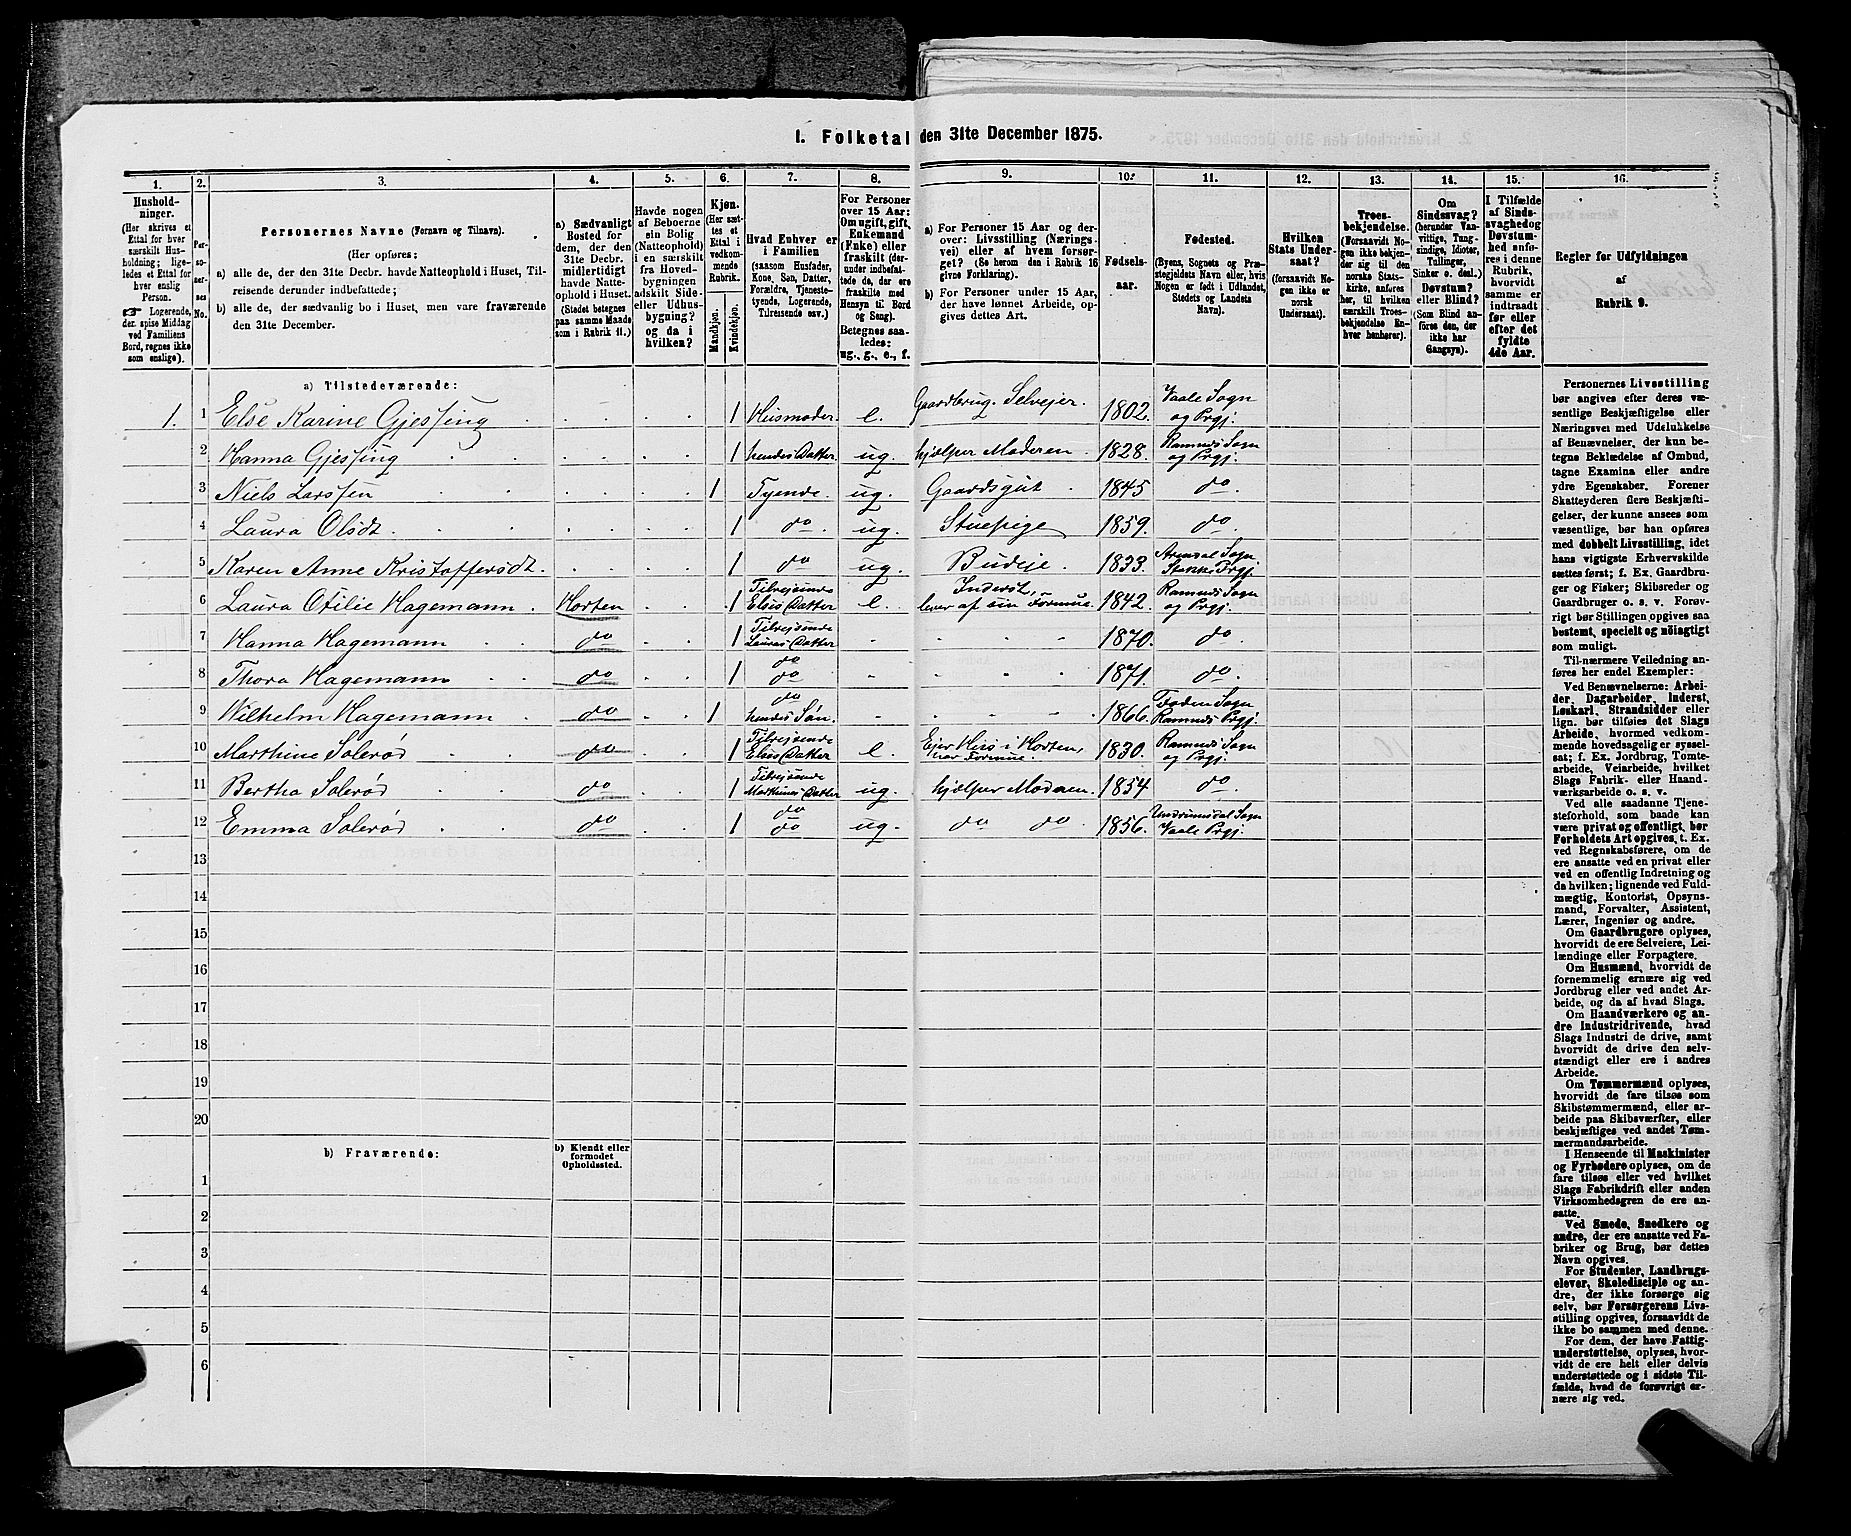 I. Folketal den 31te December 1875.
1. 2. 3. 4. 5. 6. 7. 8. 9. 10. 11. 12. 13. 14. 15. 16.
Husholdninger.
(Her skrives et
Ettal for hver
særskilt Husholdning; ligeledes
et Ettal for
hver enslig
Person.
☛ Logerende,
der spise Middag
ved Familiens
Bord, regnes ikke
som enslige).
Personernes No.
Personernes Navne (Fornavn og Tilnavn).
(Her opføres:
a) alle de, der den 31te Decbr. havde Natteophold i Huset, Tilreisende derunder indbefattede;
b) alle de, der sædvanlig bo i Huset, men vare fraværende
den 31te December.
a) Sædvanligt
Bosted for
dem, der den
31te Decbr.
midlertidigt
havde Natteophold i Huset.
(Stedet betegnes
paa samme Maade
som i Rubrik 11.)
Havde nogen
af Beboerne
sin Bolig
(Natteophold)
i en særskilt
fra Hovedbygningen
adskilt Side-
eller Udhusbygning?
og da i
hvilken?
Kjøn.
(Her sættes et
Ettal i
vedkommende
Rubrik.
Mandkjøn.
Kvindekjøn.
Hvad Enhver er
i Familien
(saasom Husfader,
Kone, Søn, Datter,
Forældre, Tjenestetyende, Logerende,
Tilreisende osv.)
For Personer
over 15 Aar:
Om ugift, gift,
Enkemand
(Enke) eller
fraskilt (derunder indbefattede da, der ere
fraskilte med
Hensyn til Bord
og Seng).
Betegnes saaledes:
ug., g., e., f.
a) For Personer 15 Aar og derover: Livsstilling (Næringsvei) eller af hvem forsørget? (Se herom den i Rubrik 16
givne Forklaring).
b) For Personer under 15 Aar,
der have lønnet Arbeide, opgives dettes Art.
Fødselsaar.
Fødested.
(Byens, Sognets og Præstegjeldets Navn, eller, hvis
Nogen er født i Udlandet,
Stedets og Landets
Navn).
Hvilken
Stats Undersaat?
(forsaavidt Nogen ikke er
norsk
Undersaat).
Troesbekjendelse.
(Forsaavidt Nogen ikke bekjender sig til den
norske Statskirke, anføres
her, til hvilken
særskilt Troesbekjendelse Enhver henhører).
Om
Sindssvag?
(herunder Vanvittige, Tungsindige, Idioter,
Tullinger,
Sinker o. desl.)
Døvstum?
eller Blind?
(Som Blind anføres den, der
ikke har
Gangsyn).
I Tilfælde
af Sindssvaghed og
Døvstumhed anføres i denne
Rubrik,
hvorvidt
samme er
indtraadt
før eller
efter det
fyldte
4de Aar.
Regler for Udfyldningen
af
Rubrik 9.
a) Tilstedeværende:
1. 1 Else Karine Gjessing 1 Husmoder e. Gaardbrug. Selvejer. 1802. Vaale Sogn og Prgj.
2 Hanna Gjessing 1 hendes Datter. ug. hjælper Moderen. 1828. Ramnes Sogn og Prgj.
3 Niels Larssen 1 Tyende. ug. Gaardsgut 1845 do
4 Laura Olsdt. 1 do. ug. Stuepige 1859. do.
5 Karen Anne Kristoffersdt 1 do ug. Budeje. 1833. Sogn Prgj.
6 Laura Otilie Hagemann. Horten 1 Tilrejsende Elses Datter e. Inderst, lever af sin Formue. 1842. Ramnes Sogn og Prgj.
7 Hanna Hagemann do 1 Tilrejsende Lauras Datter 1870. do
8 Thora Hagemann do 1 do do 1871. do.
9 Wilhelm Hagemann do 1 do hendes Søn. 1866. Sogn Ramnes Prgj.
10 Marthine Solerød do 1 Tilrejsende Elses Datter e Ejer Hus i Horten, har Formue. 1830. Ramnes Sogn og Prgj.
11 Bertha Solerød do 1 Tilrejsende Marthines Datter ug. hjælper Moderen. 1854 do
12 Emma Solerød do 1 do do ug. do do. 1856. Undrumsdal Sogn Vaale Prgj.
13
14
15
16
17
18
19
20
b) Fraværende:
b) Kjendt eller
formodet
Opholdssted.
1
2
3
4
5
6
Personernes Livsstilling
bør angives efter deres væsentlige Beskjæftigelse eller
Næringsvei med Udelukkelse
af Benævnelser, der kun betegne Beklædelse af Ombud,
tagne Examina eller andre
ydre Egenskaber. Forener
Skatteyderen flere Beskjæftigelser, der kunne ansees som
væsentlige, bør han opføres
med dobbelt Livsstilling, idet
hans vigtigste Erhvervskilde
sættes først; f. Ex. Gaardbruger og Fisker; Skibsreder og
Gaardbruger o. s. v. Forøvrigt bør Stillingen opgives saa
bestemt, specielt og nöiagtigt
som muligt.
Til nærmere Veiledning anføres her endel Exempler:
Ved Benævnelserne: Arbeider, Dagarbeider, Inderst,
Løskarl, Strandsidder eller
lign. bør tilføies det Slags
Arbeide, hvormed vedkommende hovedsagelig er sysselsat; f. Ex. Jordbrug, Tomtearbeide, Veiarbeide, hvilket
Slags Fabrik- eller Haandværksarbeide o. s. v.
Ved alle saadanne Tjenesteforhold, som baade kan
være privat og offentligt, bør
Forholdets Art opgives, t. Ex.
ved Regnskabsførere, om de
ere ansatte ved en privat eller
ved en offentlig Indretning og
da hvilken; lignende ved Fuldmægtig, Kontorist, Opsynsmand, Forvalter, Assistent,
Lærer, Ingeniør og andre.
Om Gaardbrugere oplyses,
hvorvidt de ere Selveiere, Leilændinge eller Forpagtere.
Om Husmænd, hvorvidt de
fornemmelig ernære sig ved
Jordbrug eller ved andet Arbeide, og da af hvad Slags.
Om Haandværkere og andre Industridrivende, hvad
Slags Industri de drive, samt
hvorvidt de drive den selvstændigt eller ere i andres
Arbeide.
Om Tømmermænd oplyses,
hvorvidt de fare tilsøs som
Skibstømmermænd, eller arbeide paa Skibsværfter, eller
beskjæftiges ved andet Tømmermandsarbeide.
I Henseende til Maskinister
og Fyrbødere oplyses, om de
fare tilsøs eller ved hvilket
Slags Fabrikdrift eller anden
Virksomhedsgren de ere ansatte.
Ved Smede, Snedkere og
andre, der ere ansatte ved Fabriker og Brug, bør dettes
Navn opgives.
For Studenter, Landbrugselever, Skoledisciple og andre, der ikke forsørge sig
selv, bør Forsørgerens Livsstilling opgives, forsaavidt de
ikke bo sammen med denne.
For dem, der have Fattigunderstøttelse, oplyses, hvorvidt de ere helt eller delvis
understøttede og i sidste Tilfælde, hvad de forøvrigt ernære sig ved.